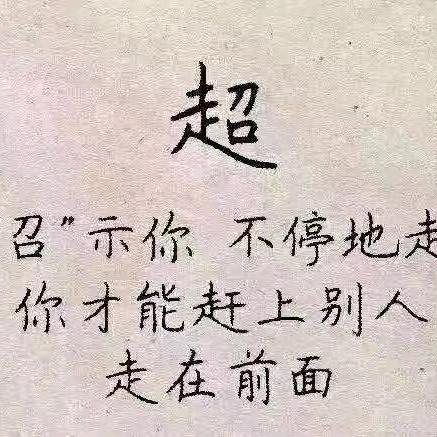 超
召”示你 不停地走
你才能赶上别人
走在前面